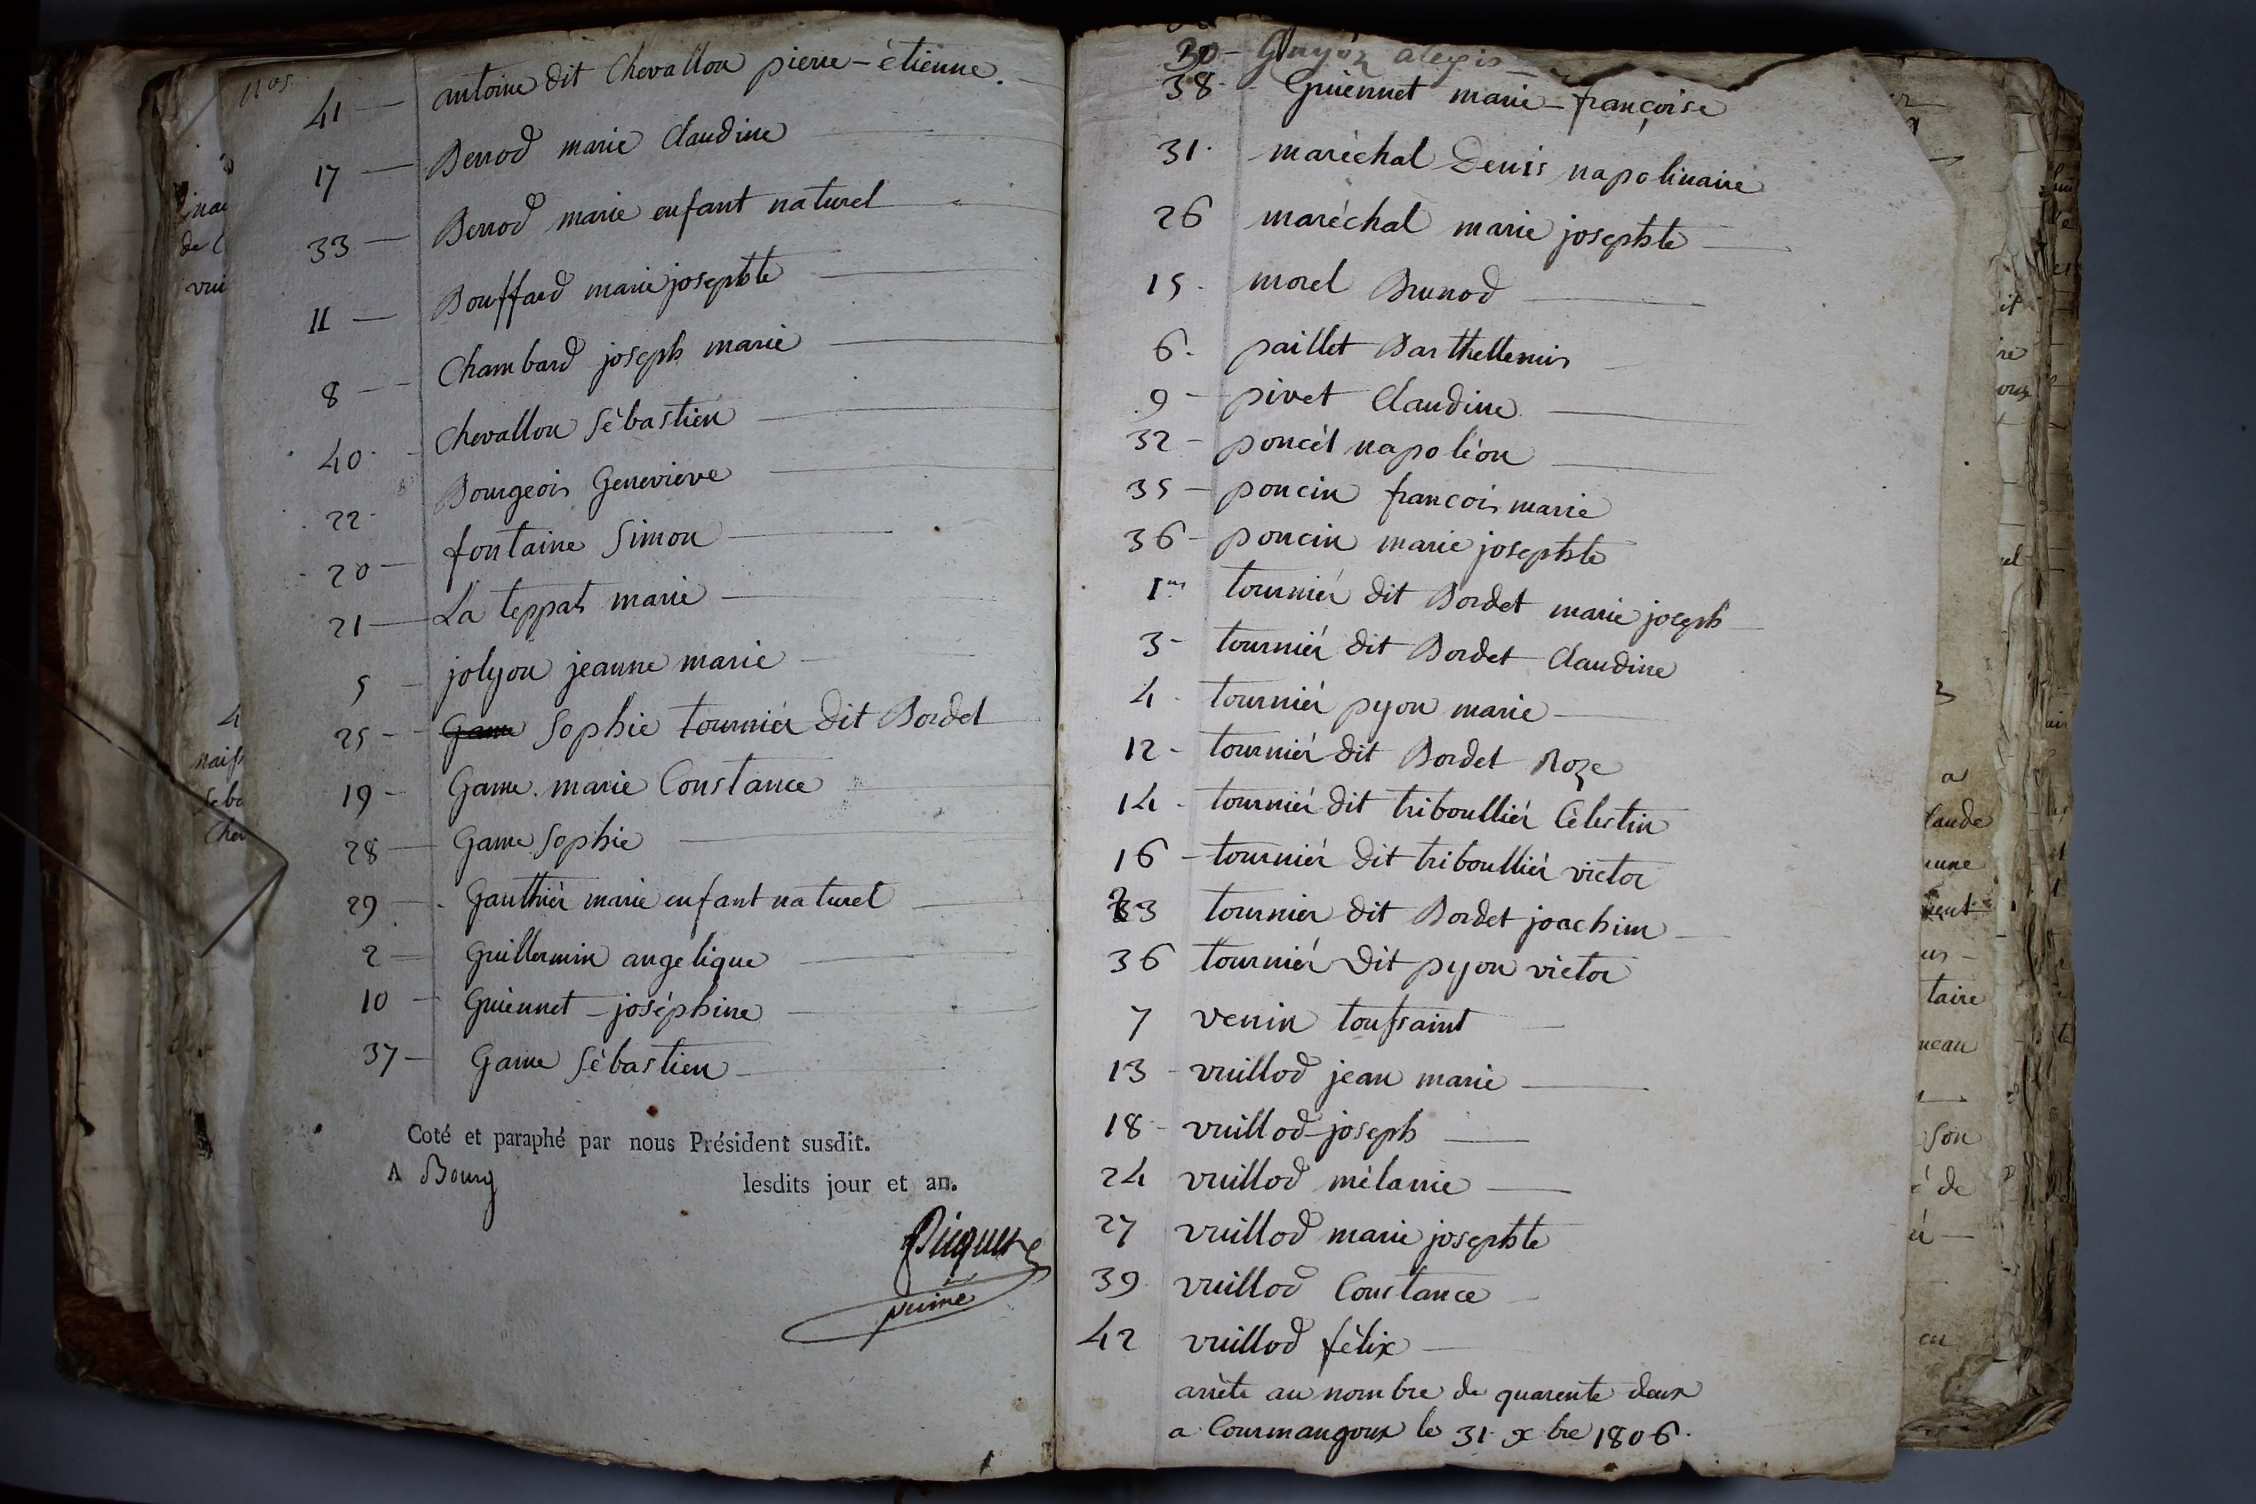 nos
41 — antoine dit Chevallon pierre-étienne.
17 — Berrod marie Claudine
33 — Berrod marie enfant naturel
11 — Bouffard marie josephte
8 — Chambard joseph marie
40 - Chevallon Sèbastien
22 - Bourgeois Genevieve
20 — fontaine Simon
21 — La teppat marie
5 — jolyon jeanne marie
25 — Game Sophie tournier dit Bordet
19 — Game marie Constance
28 — Game Sophie
29 — Gauthier marie enfant naturel
2 — Guillermin angelique
10 — Guiennet - joséphine
37 — Game Sèbastien
Coté et paraphé par nous Président susdit.
A Bourg lesdits jour et an.
Picquet
puiné
30 - Guyon alexis
38 - Guiennet marie-françoise
31. maréchal Denis napolinaire
26 maréchal marie josephte
15. morel Brunod
6. paillet Barthellemis
9 - pivet Claudine
32 - poncèt napoléon
35 - poncin francois marie
36 - poncin marie josephte
1er tournier dit Bordet marie joseph
3 - tournier dit Bordet Claudine
4 - tournier pyon marie
12 - tournier dit Bordet Roze
14 - tournier dit triboullier Cèlestin
16 - tournier dit triboullier victor
23 tournier dit Bordet joachim
36 tournier dit pyon victor
7 venin toussaint
13 - vuillod jean marie
18 - vuillod joseph
24 vuillod mèlanie
27 vuillod marie josephte
39 vuillod Constance
42 vuillod fèlix
arrèté au nombre de quarente deux
a Courmangoux le 31 xbre 1806.